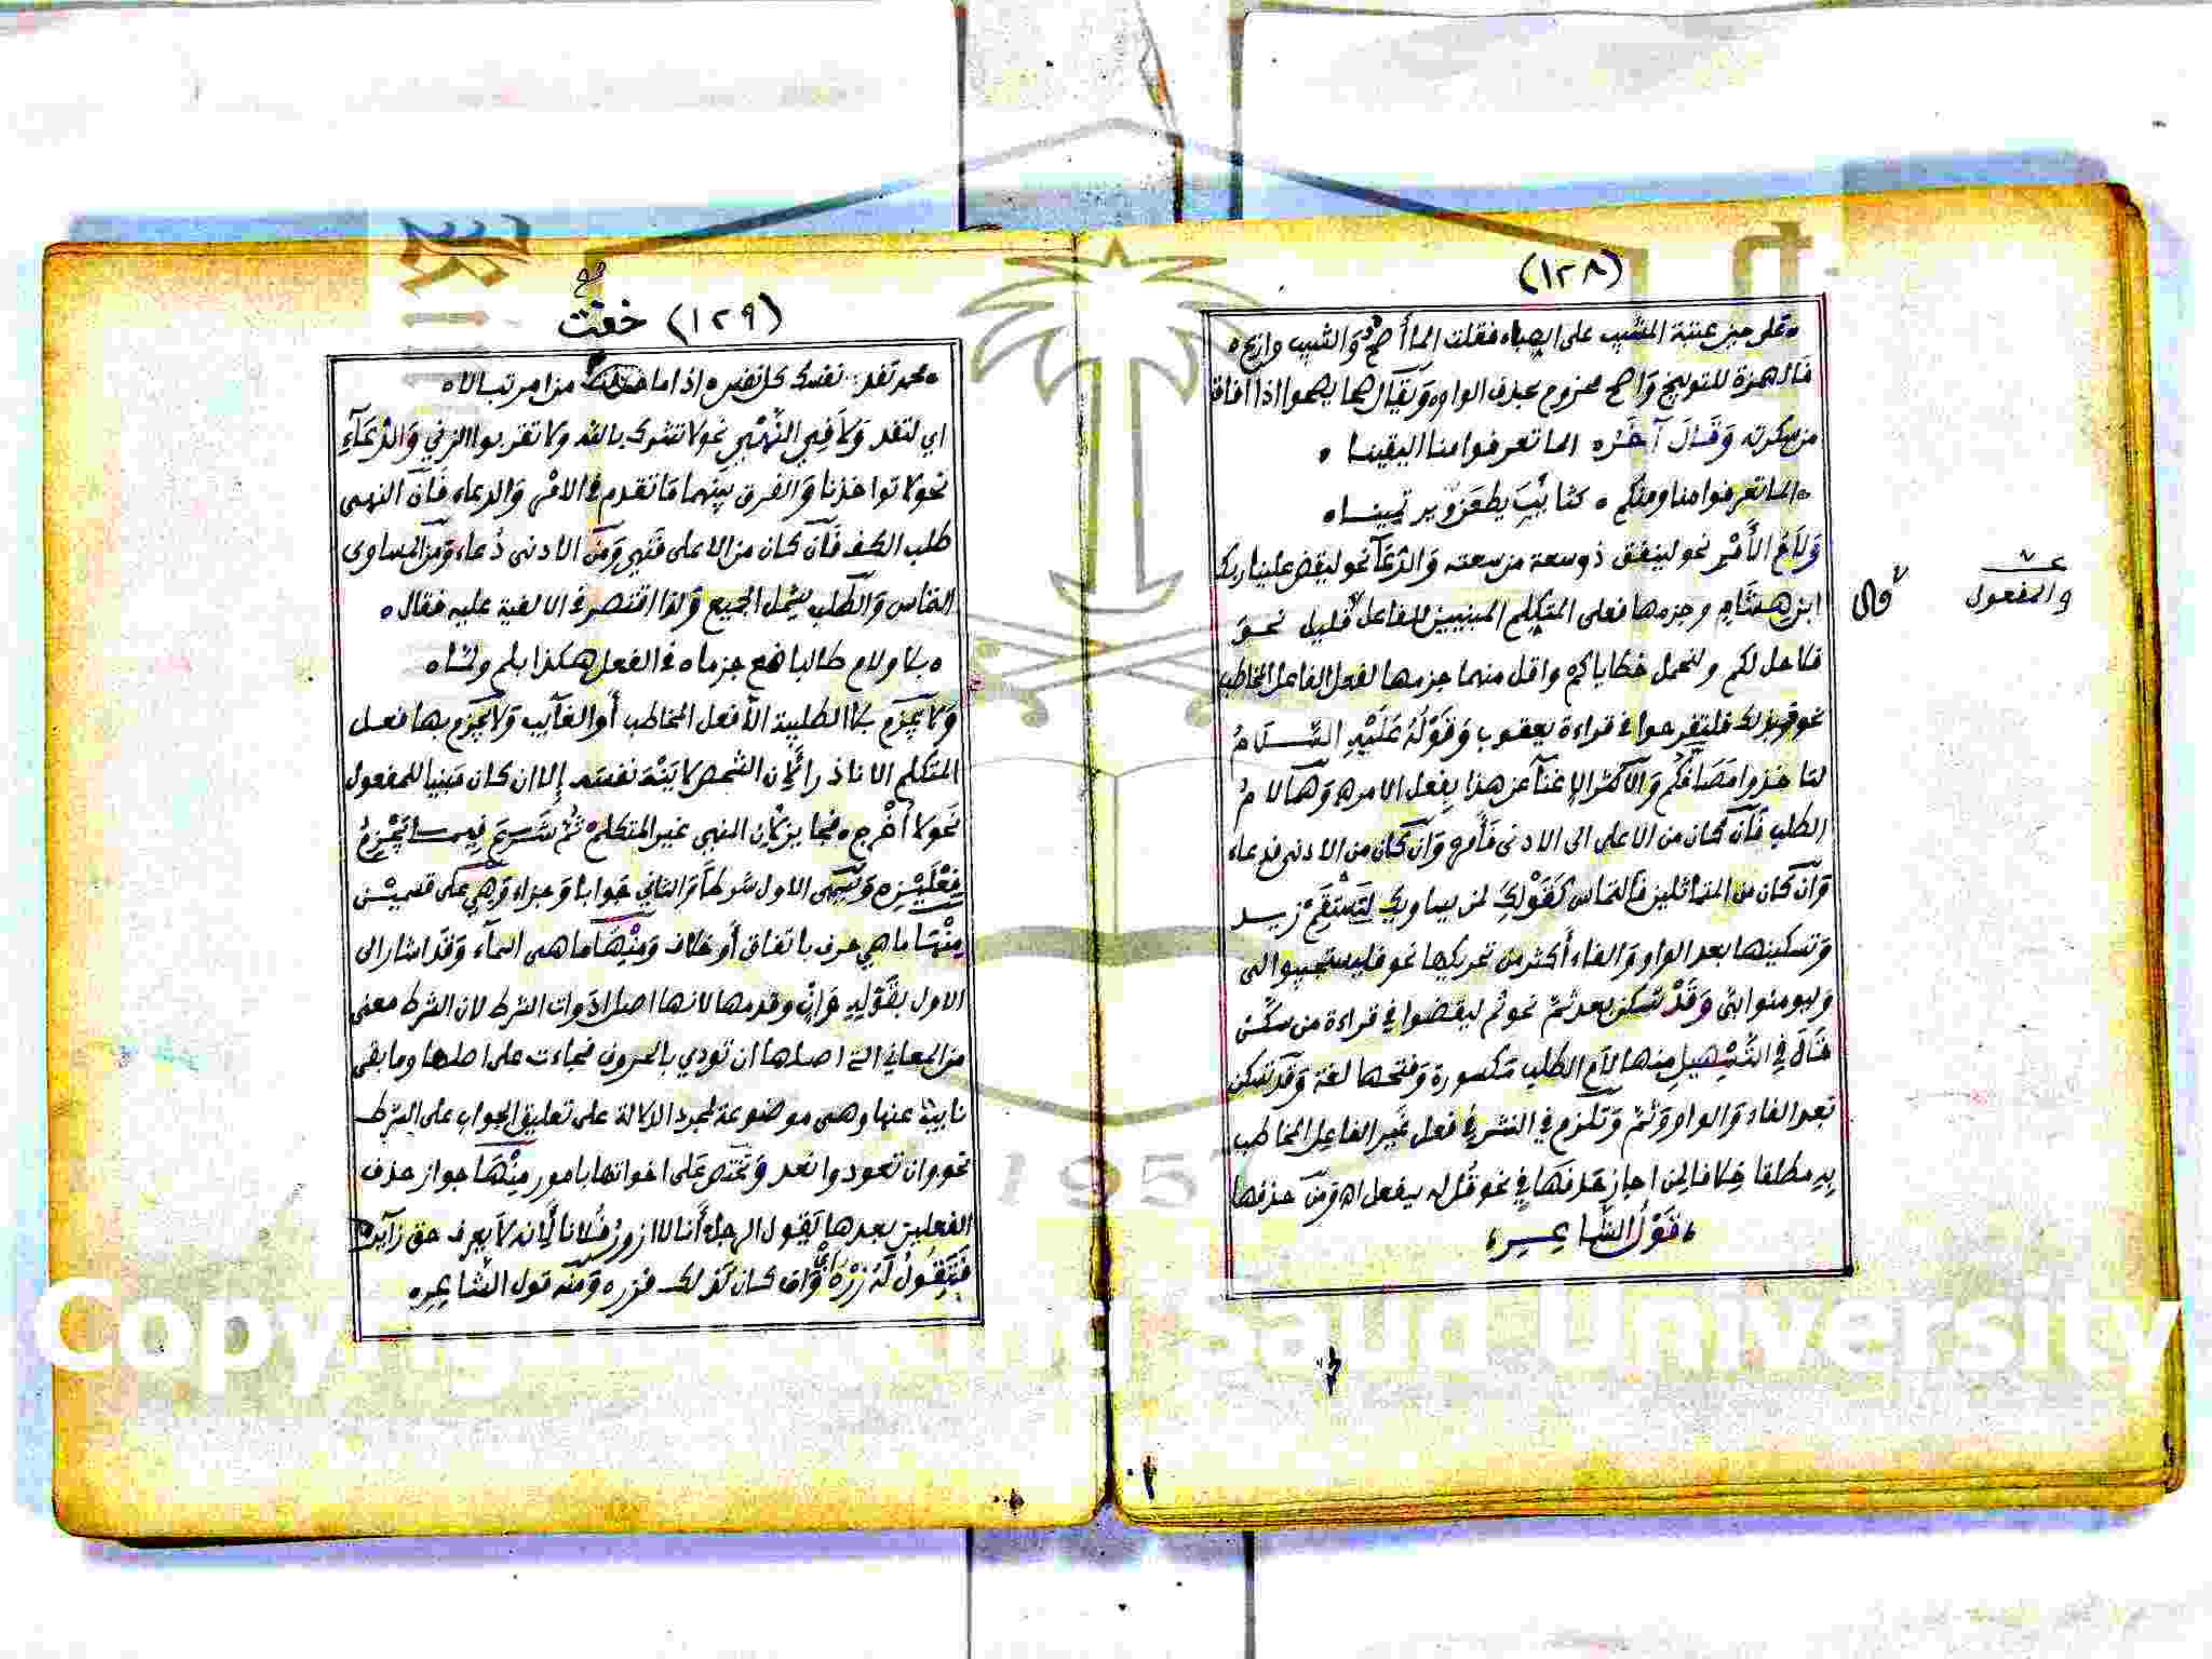 (١٢٨)
على حين عتبة المشيب على الصباه فقلت الما أصح والشيب وازع
فالهمزة للتوبيخ وأصح مجزوم بحذف الواو ويقال صحا يصحوا اذا افاق
من سكرته وقال آخره الما تعرفوا منا اليقينا
الما تعرفوا منا ومنكم كتائب يطعن ويرتمينا
ولام الأمر نحو لينفق ذو سعة من سعته والدعآ نحو ليقض علينا ربك
ابن هشام وجزمها فعلى المتكلم المبنيين للفاعل قليل نحو
قال
والمفعول
فلاصل لكم ولنحمل خطاياكم واقل منهما جزمها لفعل الفاعل المخاطب
نحو فبذلك فلتفرحوا في قراءة يعقوب وقوله عليه السلام
لتاخذوا مصافكم والأكثر الإغنآ عن هذا بفعل الامره وهآ لام
الطلب فآن كان من الاعلى الى الادنى فأمر وان كان من الادنى فدعاء
وان كان من المتماثلين فالتماس كقولك لمن يساويك ليستقم زيد
وتسكينها بعد الواو والفاء أكثر من تحريكها نحو فليستجيبوا لى
وليومنوا بى وقد تسكن بعد ثم نحو ثم ليقضوا في قراءة من سكن
قال في التسهيل منها لام الطلب مكسورة وفتحها لغة وقد تسكن
بعد الفاء والواو وثم وتلزم في النثر في فعل غير الفاعل المخاطب
به مطلقا خلافا لمن اجاز حذفها في نحو قل له ليفعل اه ومن حذفها
قول الشاعر
(١٢٩) خفت
محمد تفد نفسك كل نفس ه اذا ما من امر تبالا ه
اي لتفد ولا في النهي نحو لا تشرك بالله ولا تقربوا الزنى والدعآء
نحو لا تواخذنا والفرق بينهما ما تقدم في الامر والدعاء فآن النهى
طلب الكف فآن كان من الاعلى فنهي ومن الادنى دعاء ومن المساوى
التماس والطلب يشمل الجميع ولذا اقتصر في الالفية عليه فقال ه
ه بلا ولام طالبا ضع جزما ه في الفعل هكذا بلم ولما ه
ولا يجزم بلا الطلبية الا فعل المخاطب أو الغايب ولا يجزم بها فعل
المتكلم الا نادرا لأن الشخص لا ينهى نفسه إلا ان كان مبنيا للمفعول
نحو لا أخرج ه فجايز لأن المنهى غير المتكلم ه ثم شرع فيما يجزم
فعلين ه ويسمى الاول شرطا والثاني جوابا وجزاء وهي على قسمين
منها ما هي حرف باتفاق أو خلاف ومنها ما هى اسمآء وقد اشار الى
الاول بقوله وإن وقدمها لانها اصل ادوات الشرط لان الشرط معنى
من المعاني التي اصلها ان تودي بالحروف فجاءت على اصلها وما بقى
نايبة عنها وهى موضوعة لمجرد الدلالة على تعليق الجواب على الشرط
نحو وان تعودوا نعد وتختص على اخواتها بامور منها جواز حذف
الفعلين بعدها يقول الرجل أنا لا ازور فلانا لأنه لا يعرف حق زآيره
فتقول له زره وان كان كذلك فزره ومنه قول الشاعره
Copyright © King Saud University
1957